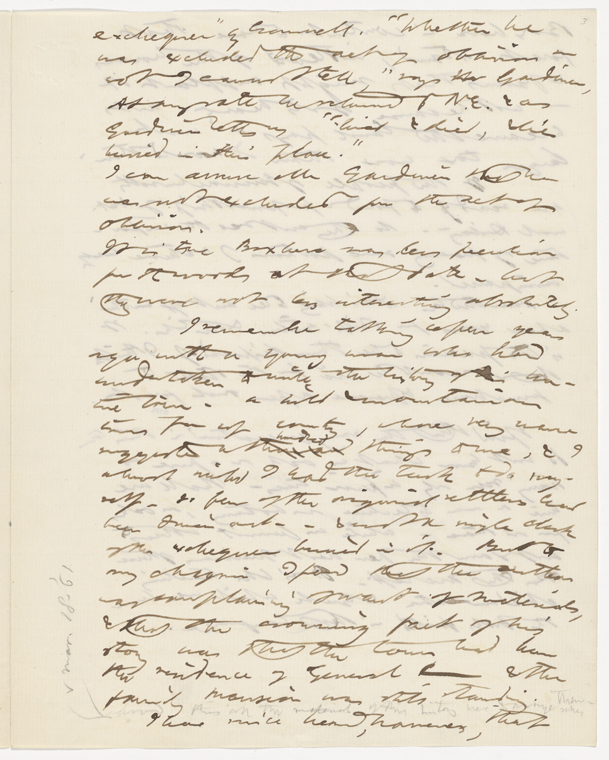 exchequer" of Cromwell. "Whether he
was excluded the act of oblivion or
not I cannot tell" says Mr Gardiner,
At any rate he returned to N.E. & as
Gardiner tells us "lived & died, & lies
buried in this place."
I can assure Mr Gardiner that he
was not excluded from the act of
oblivion.
It is true Boxboro was less peculiar
for its woods at that date – but
they were not less interesting absolutely.
I remember talking a few years
ago with a young man who had
undertaken to write the history of his na-
tive town – a wild & mountainous
town far up country, whose very name
suggested a hundred things to me, & I
almost wished I had the task to do my-
self – so few of the original settlers had
been driven out – & not a single clerk
of the exchequer buried in it. But to
my chagrin I found that the author
was complaining of want of materials,
& that the crowning fact of his
story was that the town had been
the residence of General C— & the
family mansion was still standing.
I have since heard, however, that
v Mar. 18 '61